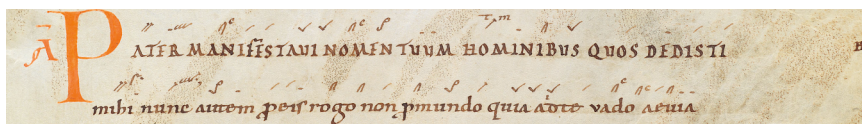 Ā PATER MANIFESTAVI NOMEN TUUM HOMINIBUS QUOS DEDISTI
mihi nunc autem ꝓ eis rogo non ꝓ mundo quia ad te vado aeuia